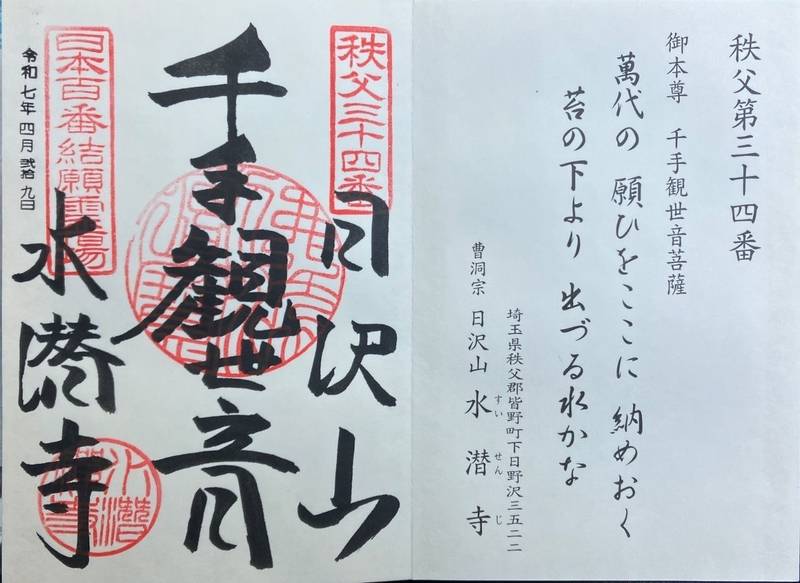 秩父第三十四番
御本尊 千手観世音菩薩
萬代の 願ひをここに 納めおく
苔の下より 出づる水かな
埼玉県秩父郡皆野町下日野沢三五二二
曹洞宗 日沢山 水潜寺
すい せん じ
秩父三十四番
日沢山
千手観世音
水潜寺
日本百番結願霊場
令和七年四月弐拾九日